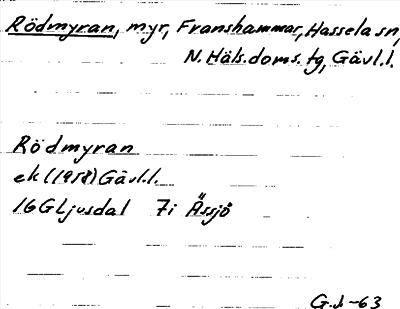 Rödmyran, myr, Franshammar, Hassela sn,
N. Häls. doms. tg, Gävl. l.
Rödmyran
ek (1958) Gävl. l.
16G Ljusdal 7i Ässjö
G. J. -63